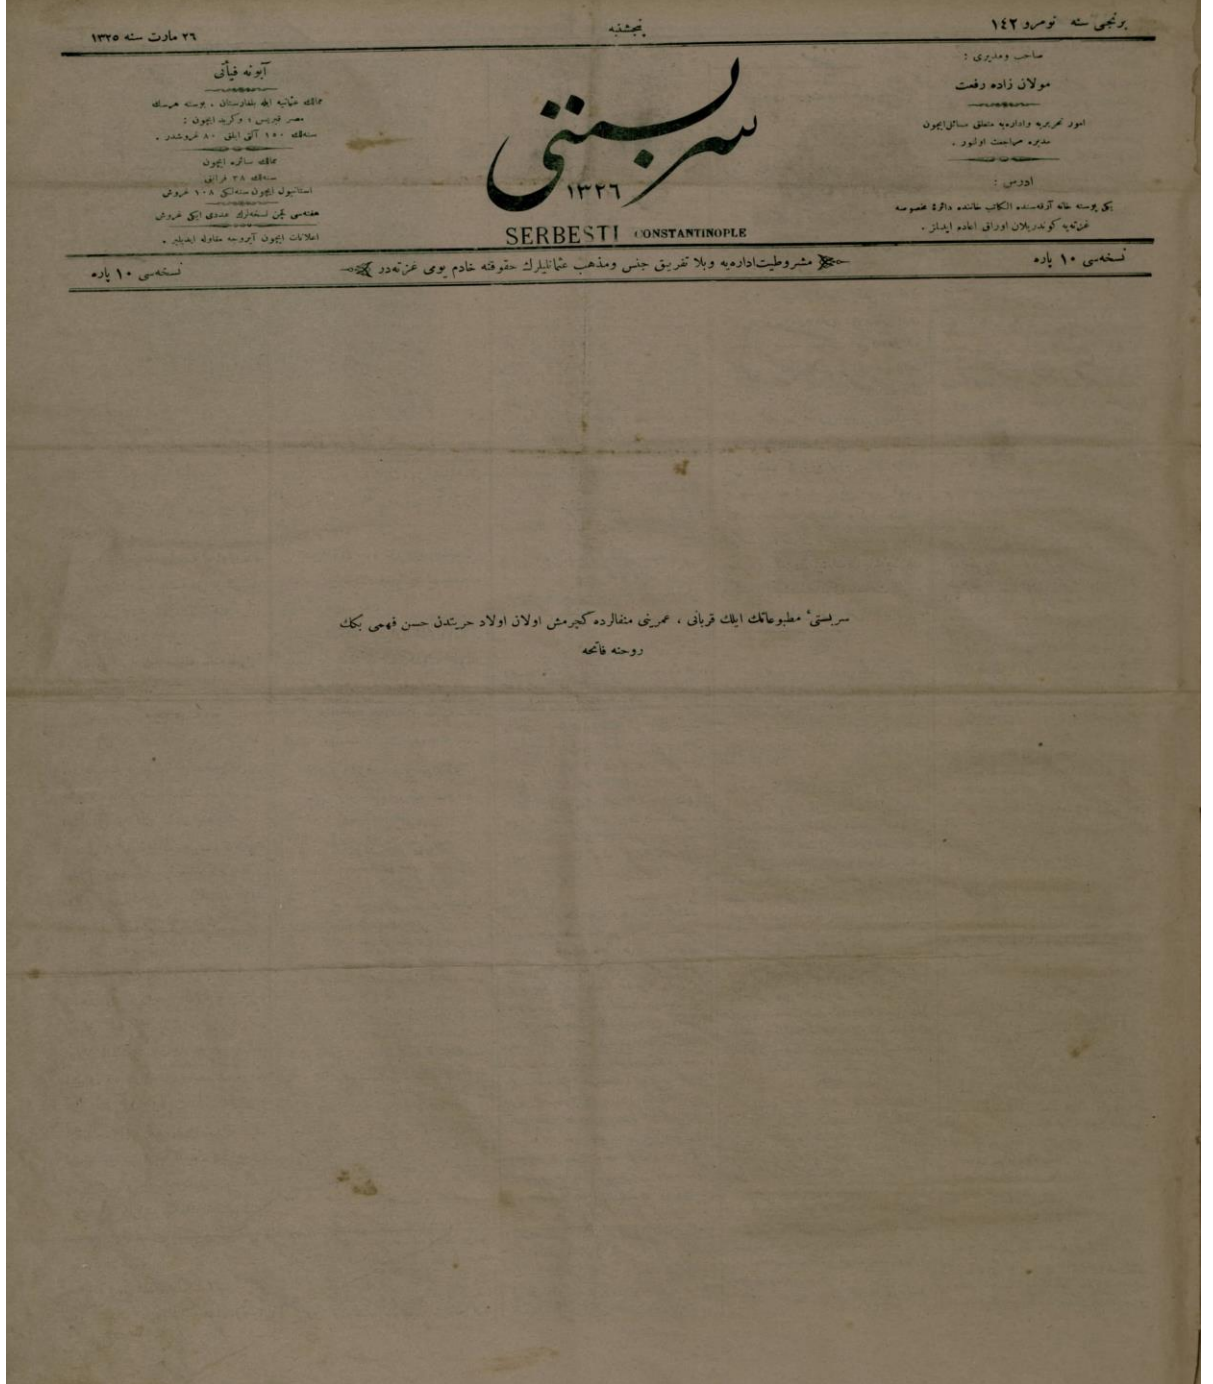 برنجی سنه نومرو ١٤٢
پنجشنبه
٢٦ مارت سنه ١٣٢٥
صاحب ومدیری :
مولان زاده رفعت
امور تحریریه واداره‌یه متعلق مسائل ایچون
مدیره مراجعت اولنور .
ادرس :
یکی پوسته خانه آرقه‌سنده الکاتب خاننده دائرهٔ مخصوصه
غزته‌یه کوندریلان اوراق اعاده ایدلمز .
سربستی
١٣٢٦
SERBESTI CONSTANTINOPLE
آبونه فیأتی
ممالك عثمانیه ایله بلغارستان ، بوسنه هرسك
مصر قبریس ، وکرید ایچون :
سنه‌لك ١٥٠ آلتی ایلق ٨٠ غروشدر .
ممالك سائره ایچون
سنه‌لك ٣٨ فرانق
استانبول ایچون سنه‌لکی ١٠٨ غروش
هفته‌سی کچن نسخه‌لرك عددی ایکی غروش
اعلانات ایچون آیروجه مقاوله ایدیلیر .
نسخه‌سی ١٠ پاره
مشروطیت اداره‌یه وبلا تفریق جنس ومذهب عثمانلیلرك حقوقنه خادم یومی غزته‌در
نسخه‌سی ١٠ پاره
سربستیٔ مطبوعاتك ایلك قربانی ، عمرینی منفالرده کچرمش اولان اولاد حریتدن حسن فهمی بکك
روحنه فاتحه